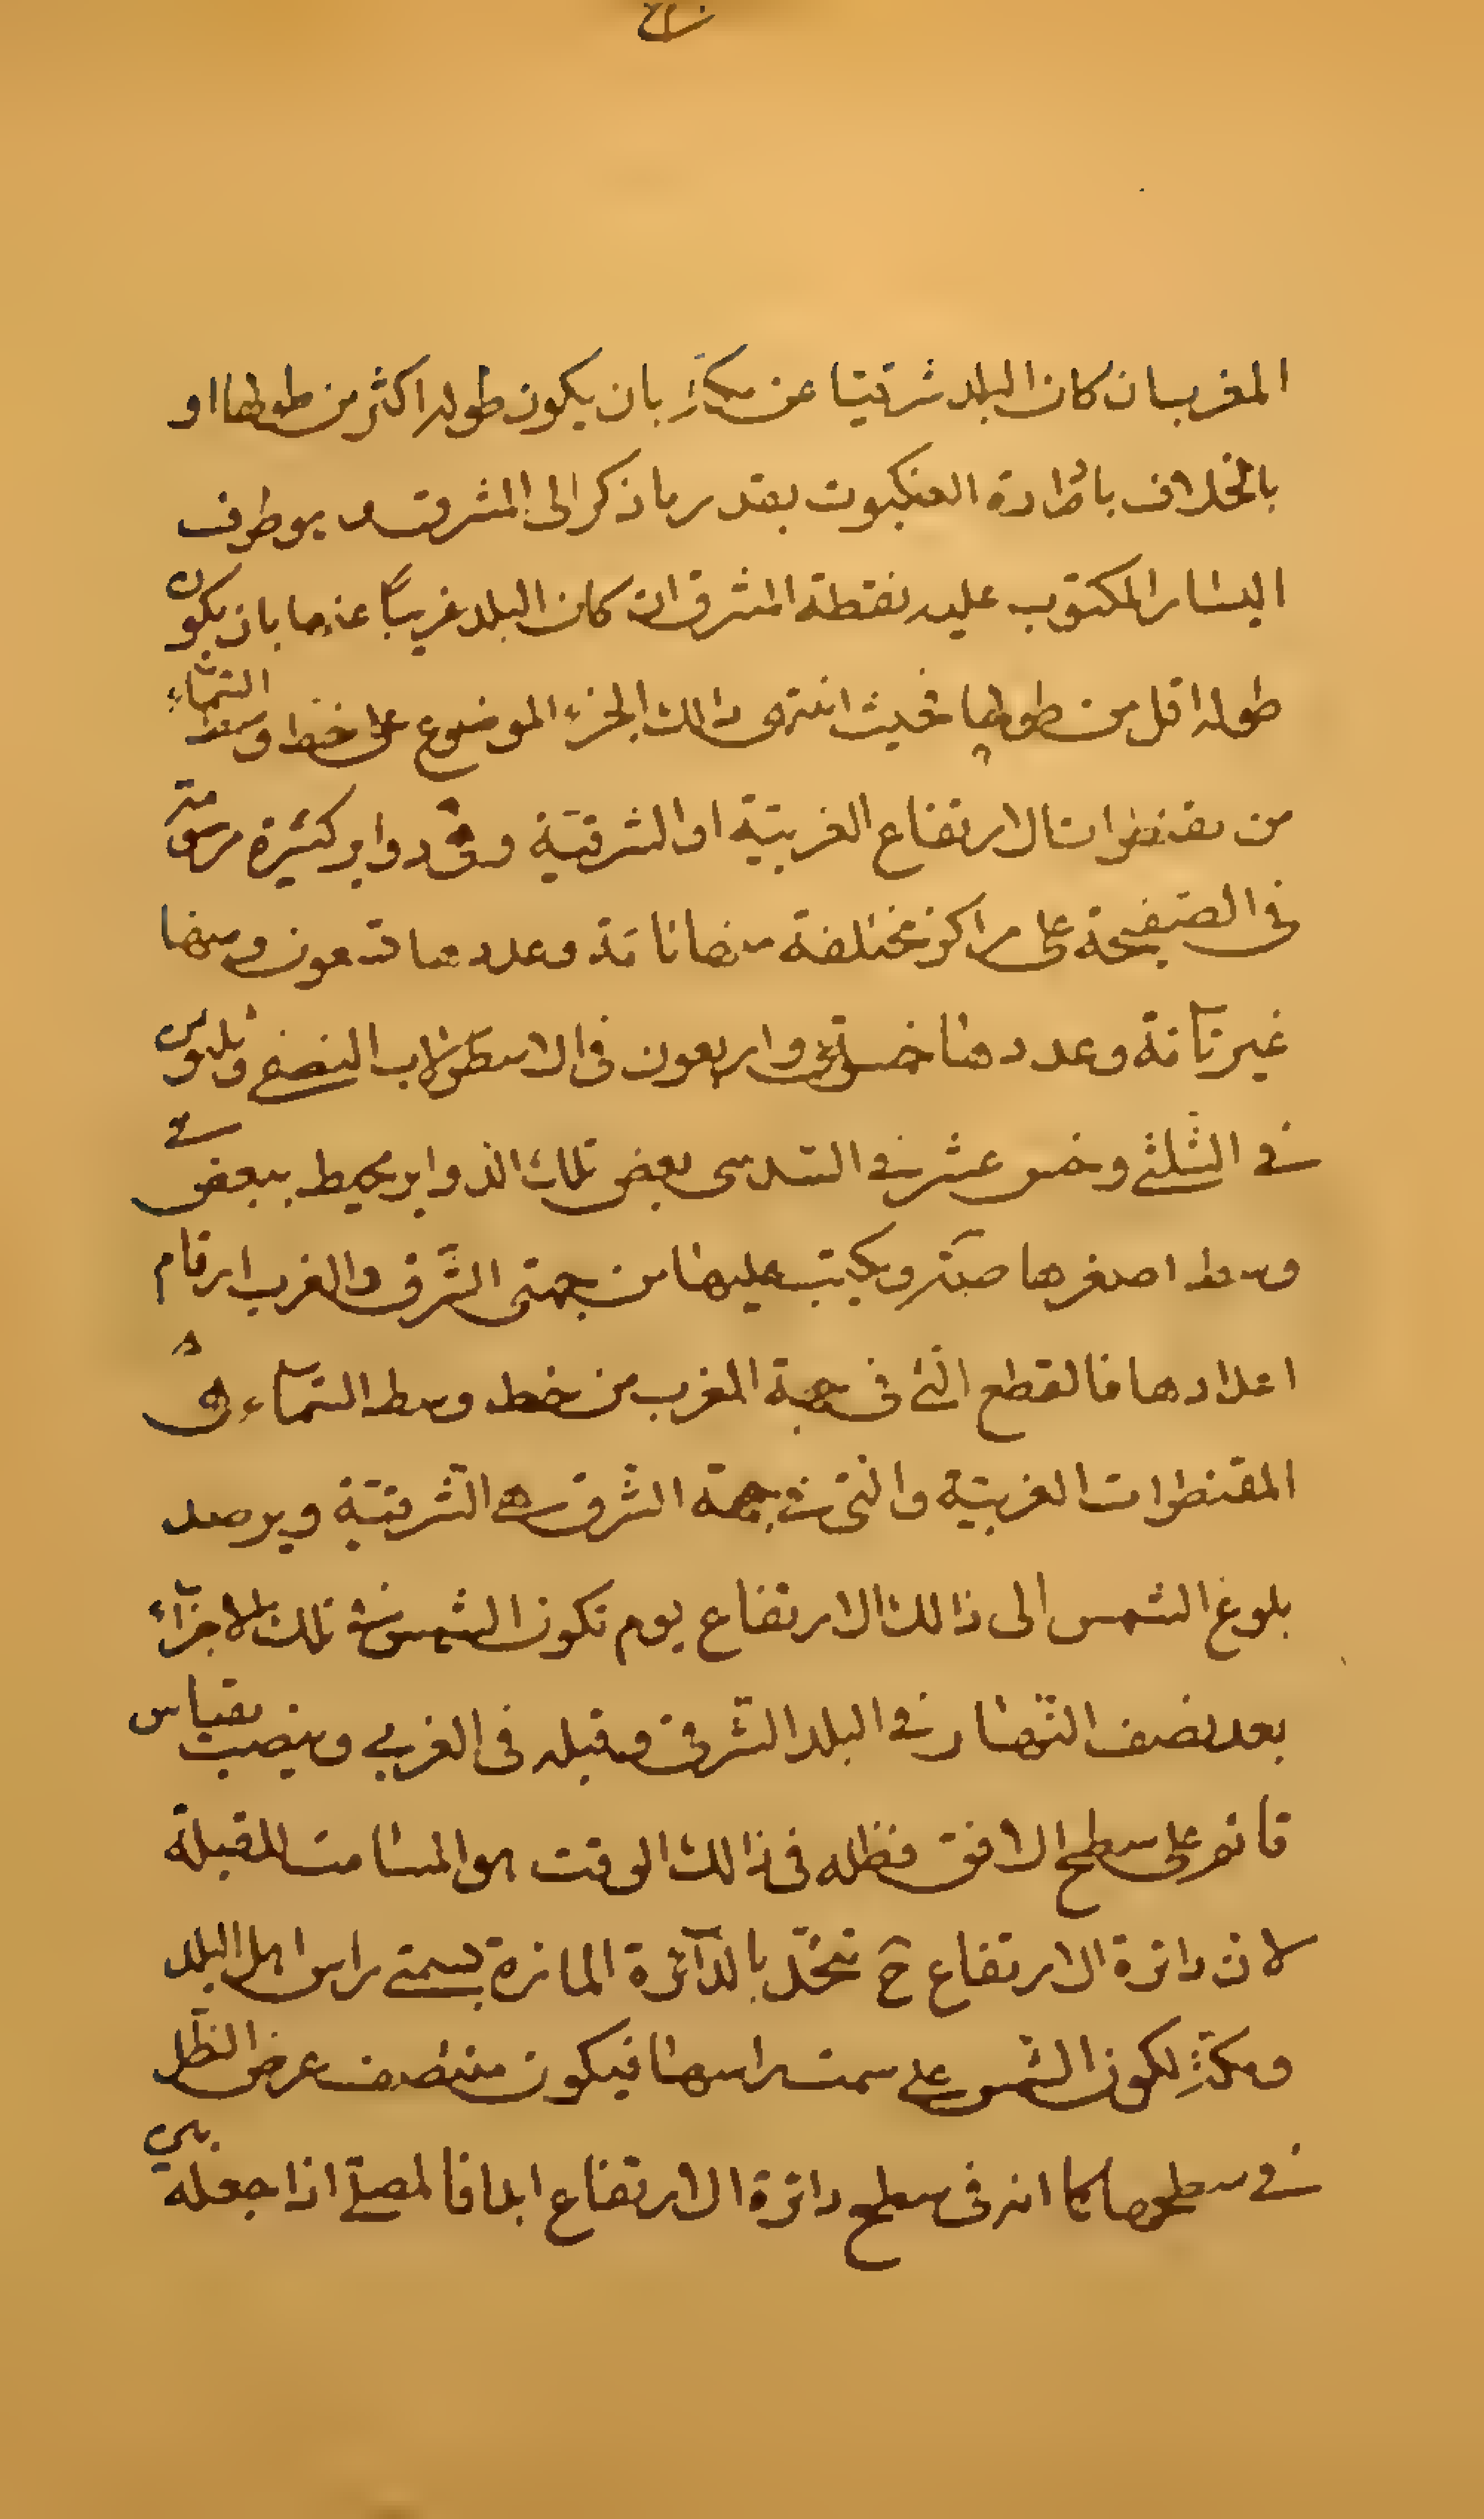 المغرب ان كان البلد شرقيّا عن مكّة بان يكون طوله اكثر من طولها او
بالخلاف باطرادة العنكبوت بقدر ما ذكر الى المشرق و هو طرف
اليسار المكتوب عليه نقطة المشرق ان كان البلد غربيّاً عنها بان يكون
طوله اقل من طولها فحيث انتهى ذالك الجزء الموضوع على خط وسط السّماء
من مقنطرات الارتفاع الغربيّة او الشرقيّة وهى دواير كثيرة مرسومة
فى الصّفيحة على مراكز مختلفة منها تامّة وعددها تسعون ومنها
غير تآمّة وعددها خمسة واربعون فى الاسطرلاب النصفى وثلاثون
فى الثلثى وخمس عشر فى السّدسى بعض تلك الدواير محيط ببعض فى
وسط اصغرها صتر ويكتب عليها من جهتى الشّرق والغرب ارقام
اعدادها فالقطع التى فى جهة المغرب من خط وسط السّمآء هى
المقنطرات الغربيّة والتى فى جهة الشّرق هى الشّرقيّة ويرصد
بلوغ الشمس الى ذالك الارتفاع يوم تكون الشمس فى تلك الاجزآء
بعد نصف النّهار فى البلد الشّرقى وقبله فى الغربى وينصب مقياس
قائم على سطح الافق فظله فى ذالك الوقت هو المسامت للقبلة
لان دائرة الارتفاع ح تتّحد بالدآئرة المارّة بسمتى راس اهل البلد
ومكّة لكون الشمس على سمت راسها فيكون منتصف عرض الظّل
فى سطحها كما انه فى سطح دائرة الارتفاع ابدا فالمصلّى اذا جعله بين